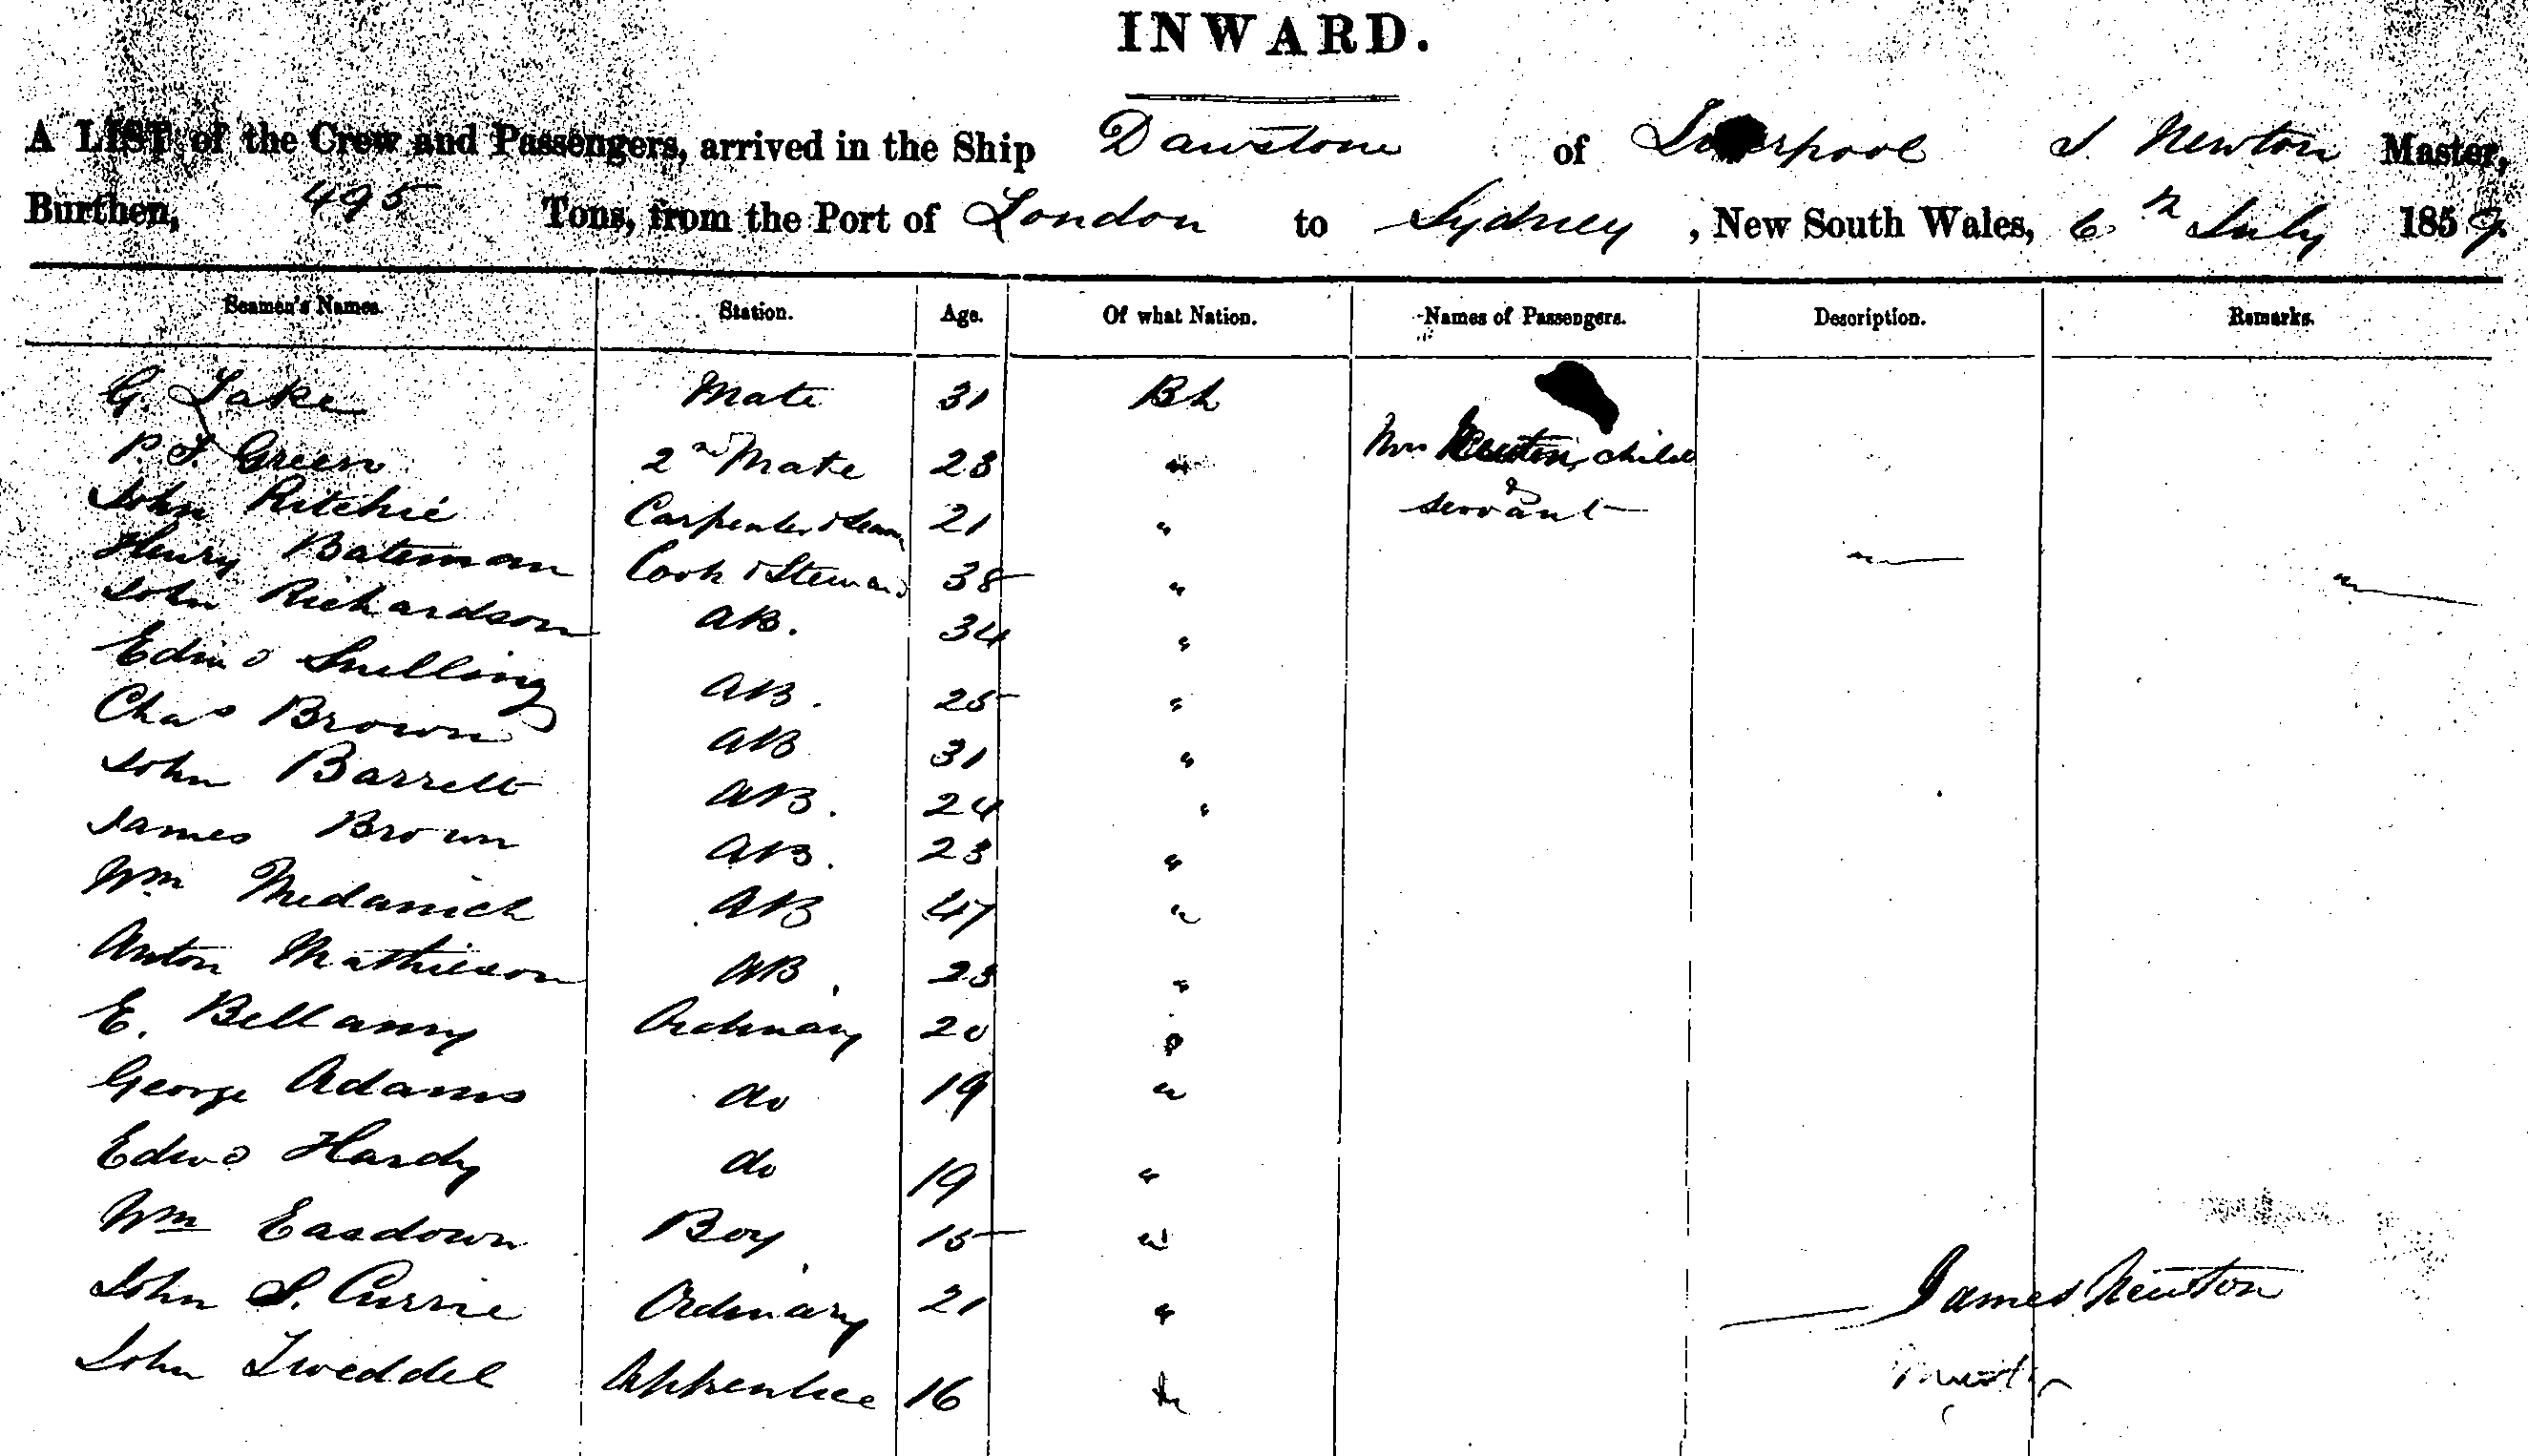 INWARD.
A LIST of the Crew and Passengers, arrived in the Ship Dawstone of Liverpool J. Newton Master,
Burthen, 495 Tons, from the Port of London to Sydney, New South Wales, 6th July 1859.
Seamen's Names. Station. Age. Of what Nation. Names of Passengers. Description. Remarks.
G. Lake Mate 31 Bh
P. J. Green 2nd Mate 23 " Mrs Newton, child
John Ritchie Carpenter & Seam 21 " & servant
Henry Bateman Cook & Steward 38 "
John Richardson AB. 34 "
Edwd Snelling AB. 25 "
Chas Brown AB 31 "
John Barrett AB. 24 "
James Brown AB. 23 "
Wm AB 47 "
Anton Mathieson AB. 23 "
E. Bellamy Ordinary 20 "
George Adams do 19 "
Edwd Hardy do 19 "
Wm Easdown Boy 15 "
John S. Currie Ordinary 21 " James Newton
John Tweddel Apprentice 16 " Master